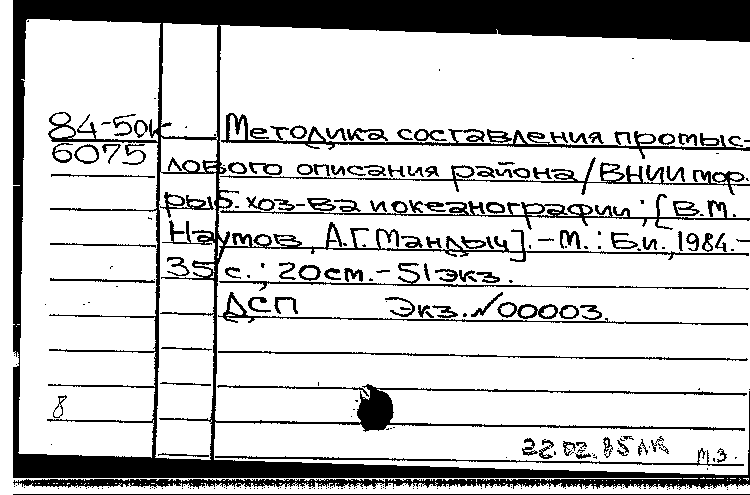 84-50к Методика составления промыс-
6075
лового описания района / ВНИИ мор.
рыб. хоз-ва и океанографии; [В.М.
Наумов, А.Г. Мандыч]. - М.: Б.и., 1984. -
35 с.; 20 см. - 51 экз.
ДСП Экз. №00003.
8
22.02.85 лк м.з.